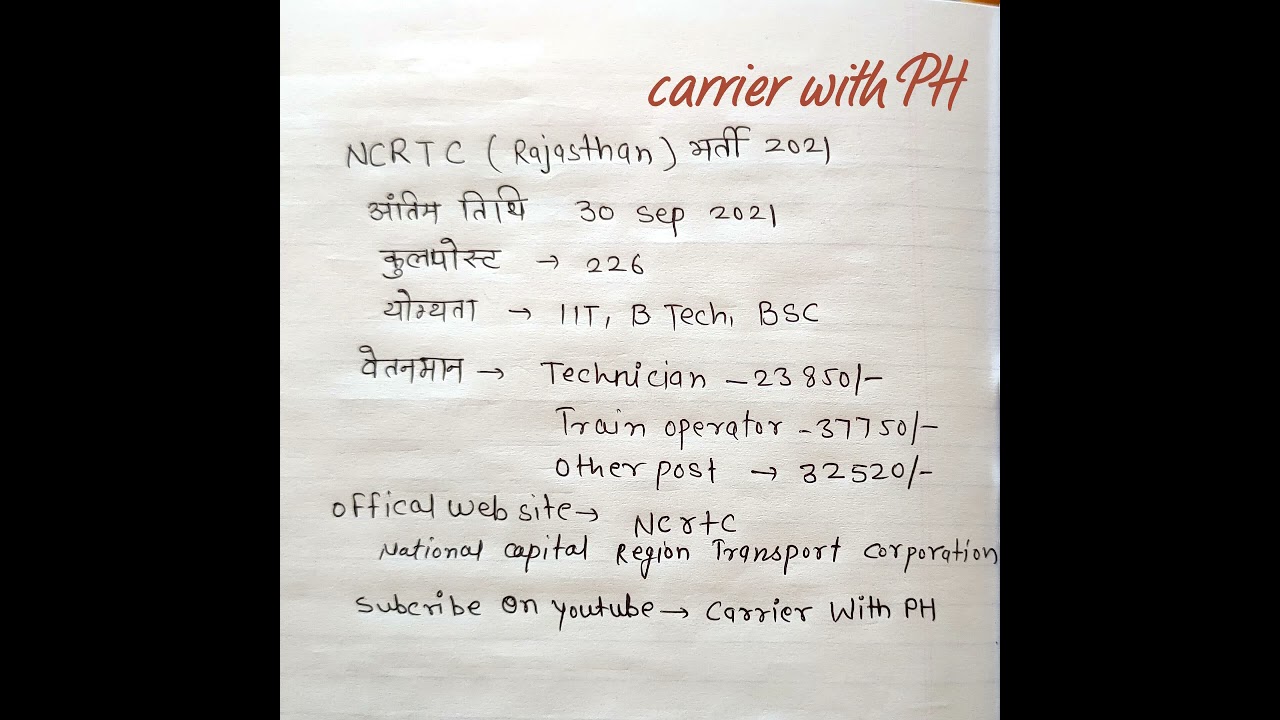 carrier with PH
NCRTC (Rajasthan) भर्ती 2021
अंतिम तिथि 30 sep 2021
कुलपोस्ट → 226
योग्यता → IIT, B Tech, BSC
वेतनमान → Technician - 23850/-
Train operator - 37750/-
Other post → 32520/-
Offical web site → NcrtC
National capital Region Transport corporation
Subcribe On youtube → Carrier With PH